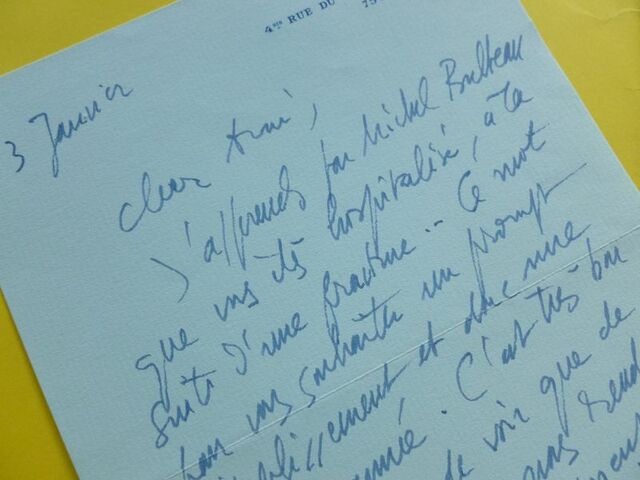 4 BIS RUE DU
75
3 Janvier
Cher Ami,
J'apprends par Michel Bulteau
que vous êtes hospitalisé, à la
suite d'une fracture. Ce mot
pour vous souhaiter un prompt
rétablissement et donc une
année. C'est très bon
de voir que de
nous rend